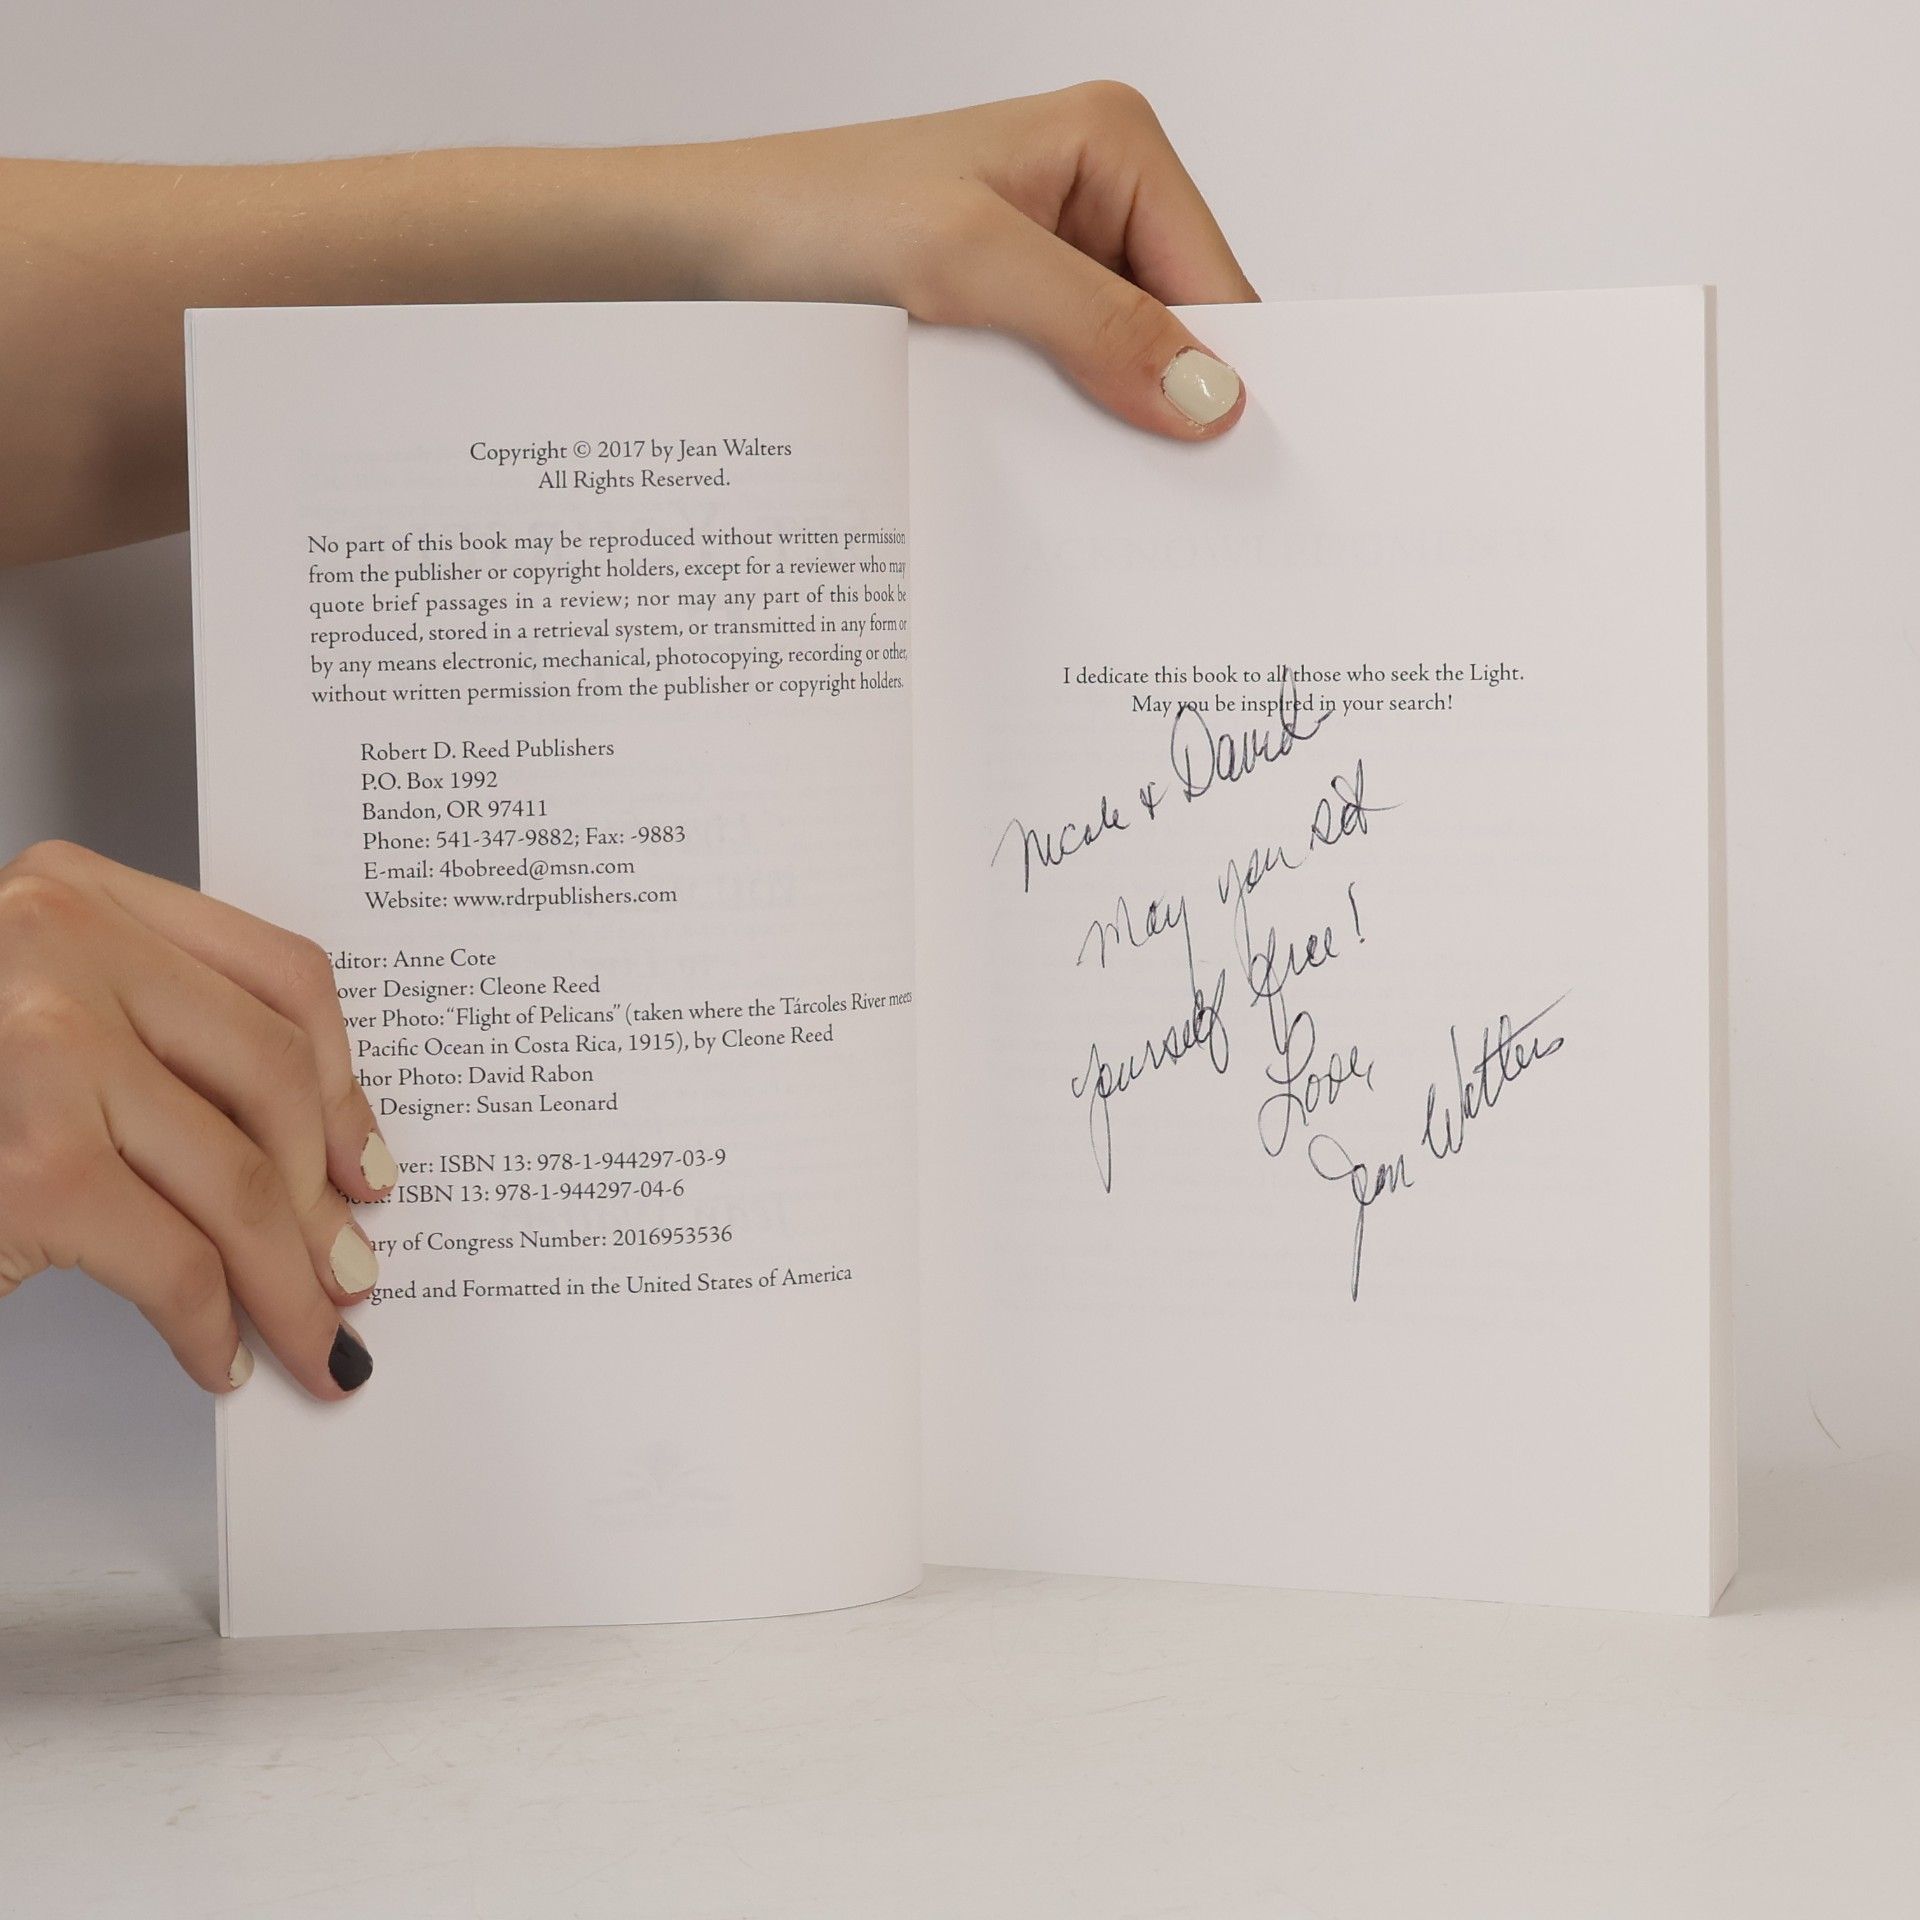 Copyright © 2017 by Jean Walters
All Rights Reserved.
No part of this book may be reproduced without written permission
from the publisher or copyright holders, except for a reviewer who may
quote brief passages in a review; nor may any part of this book be
reproduced, stored in a retrieval system, or transmitted in any form or
by any means electronic, mechanical, photocopying, recording or other,
without written permission from the publisher or copyright holders.
Robert D. Reed Publishers
P.O. Box 1992
Bandon, OR 97411
Phone: 541-347-9882; Fax: -9883
E-mail: 4bobreed@msn.com
Website: www.rdrpublishers.com
Editor: Anne Cote
over Designer: Cleone Reed
over Photo: "Flight of Pelicans" (taken where the Tárcoles River meets
Pacific Ocean in Costa Rica, 1915), by Cleone Reed
hor Photo: David Rabon
Designer: Susan Leonard
ver: ISBN 13: 978-1-944297-03-9
ISBN 13: 978-1-944297-04-6
ary of Congress Number: 2016953536
gned and Formatted in the United States of America
I dedicate this book to all those who seek the Light.
May you be inspired in your search!
Nicole & David
May you set
yourself free!
Love,
Jean Walters